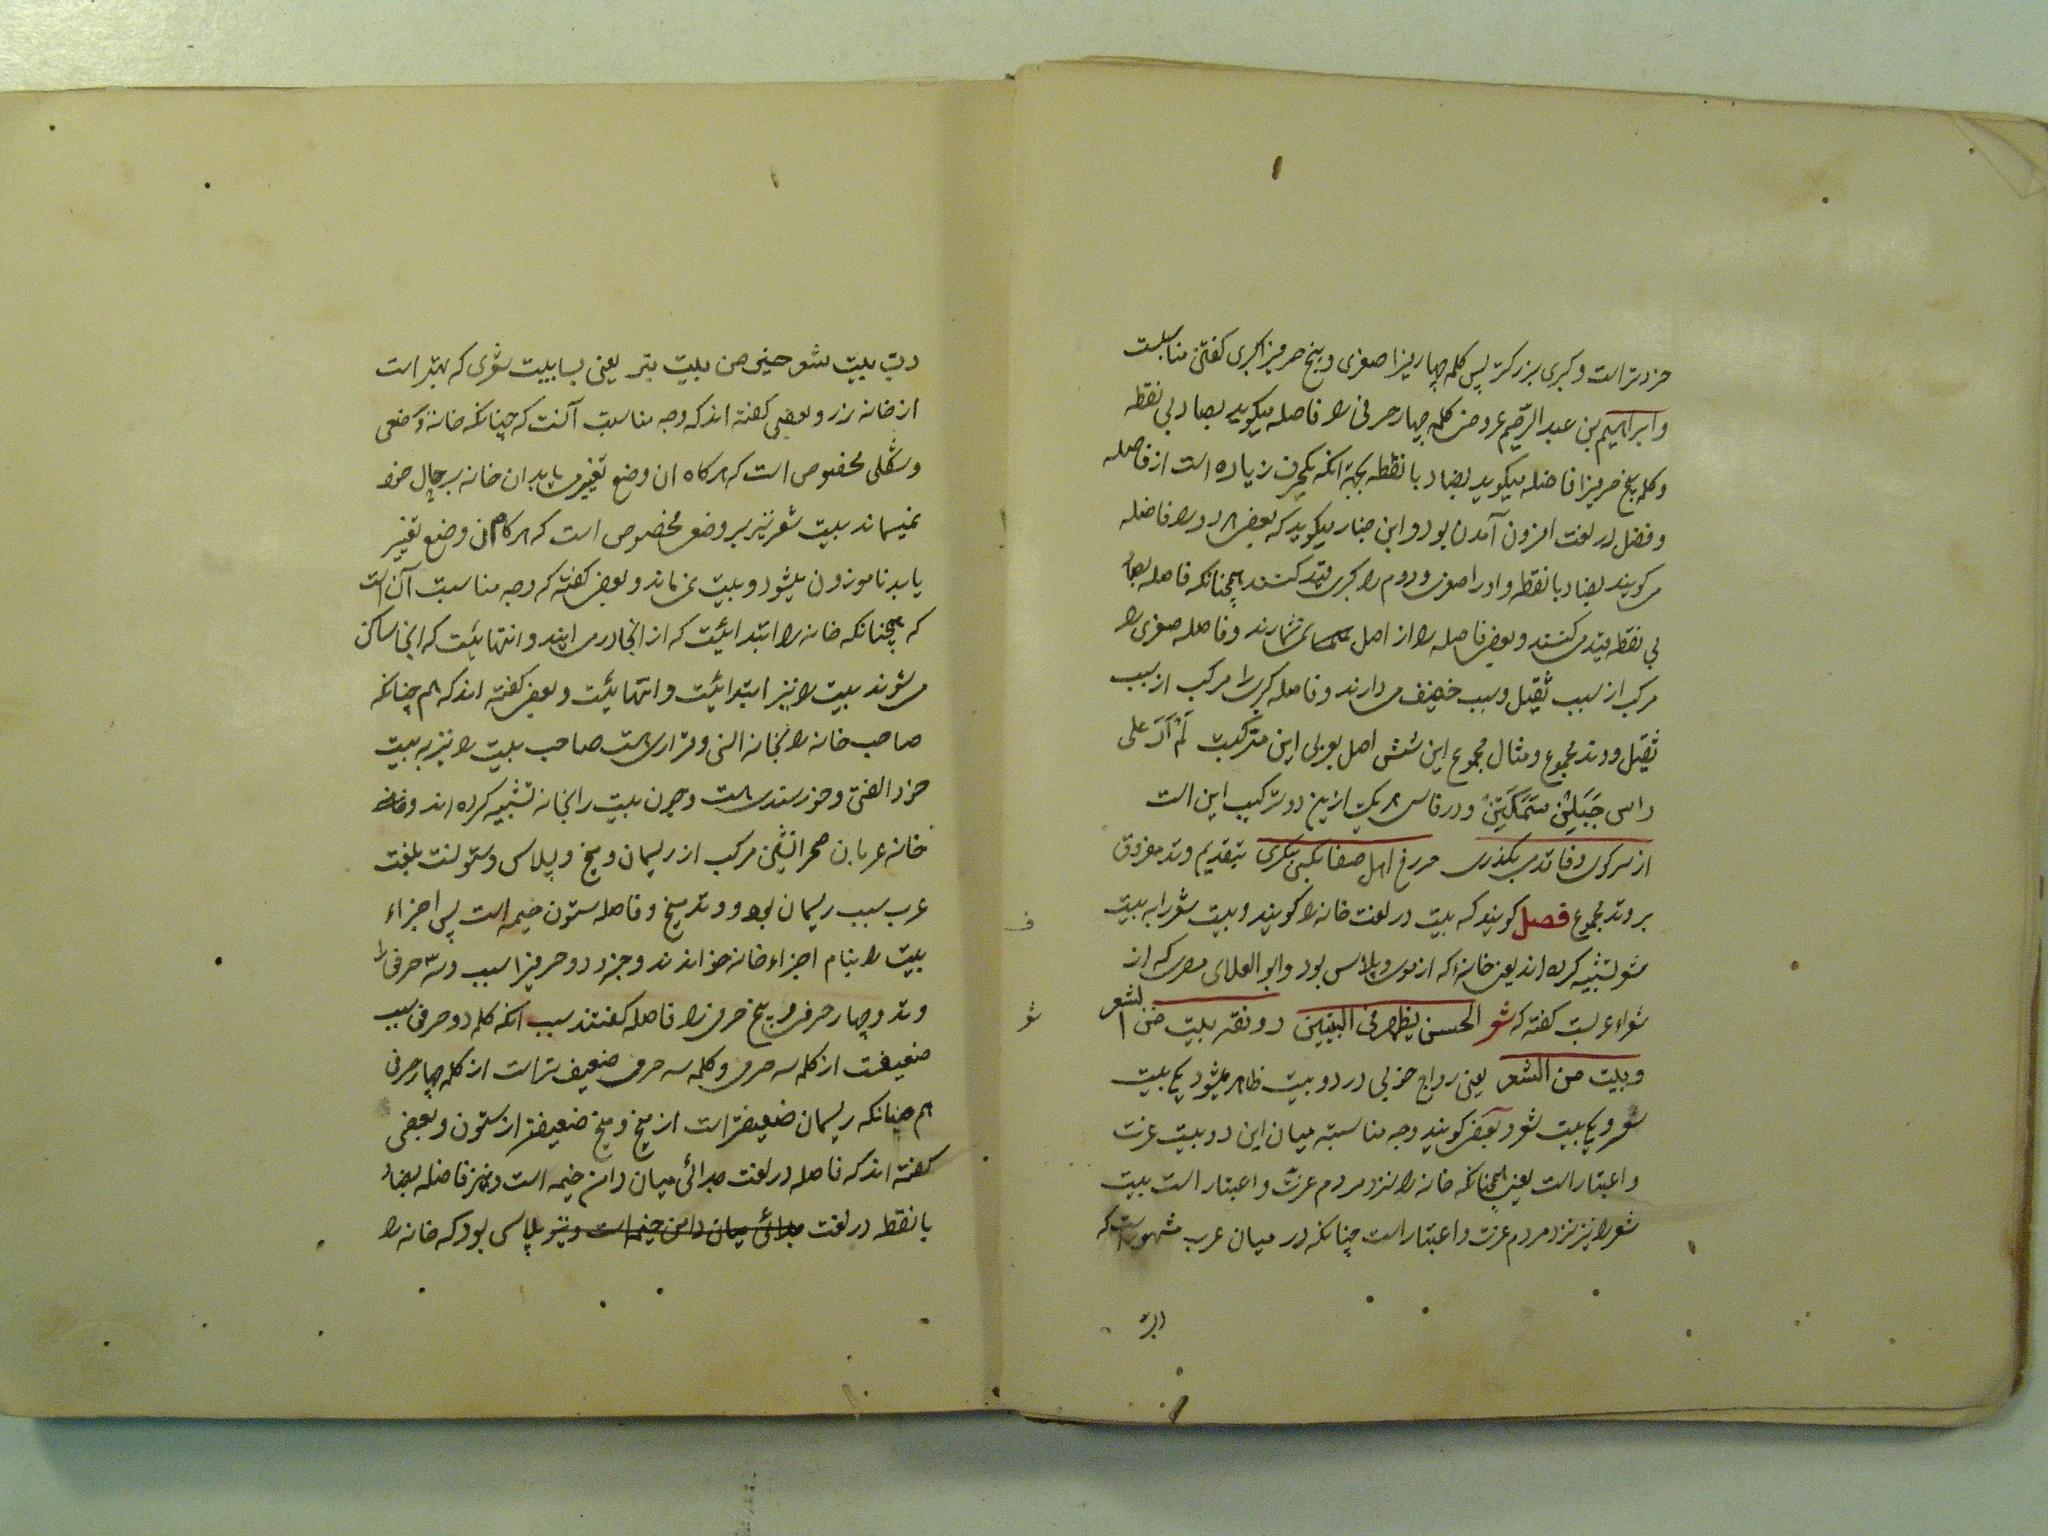 خردتر است و کبری بزرکتر پس کلمه چهار حرفیرا صغری و پنج حرفیرا کبری کفتن مناسبست
و ابراهیم بن عبد الرّحیم عروضی کلمه چهار حرفی را فاصله میکوید بصاد بی نقطه
و کلمه پنج حرفیرا فاضله میکوید بضاد با نقطه بجهة آنکه یکحرف زیاده است از فاصله
و فضل در لغت افزون آمدن بود و ابن میکوید که بعضی هر دو را فاضله
می کویند بضاد با نقطه و اول را صغری و دوم را کبری قید کنند همچنانکه فاصله بصاد
بی نقطه قید می کنند و بعضی فاصله را از اصل نمی شمارند و فاصله صغری را
مرکب از سبب ثقیل و سبب خفیف می دارند و فاصله کبری را مرکب از سبب
ثقیل و وتد مجموع و مثال مجموع این شش اصل بعربی این ترکیبست لَمْ اَرَ علی
راس جَبَلِنْ سَمَکَتِنْ و در فارسی هر یک ازین دو ترکیب این است
از سر کوی وفا قدمی بکذری مرغ اهل صفا یکی بنکری بتقدیم وتد مفروق
بر وتد مجموع فصل کویند که بیت در لغت خانه را کویند و بیت شعر را به بیت
شعر تشبیه کرده اند یعنی خانه‌ء که از موی و پلاس بود و ابو العلای معری که از
شعراء عربست کفته که شعر الحسن یظهر فی البیتین رونقه بیت من الشعر
و بیت من الشعر یعنی رواج خوبی در دو بیت ظاهر میشود یکی بیت
شعر و یکی بیت شعر و بعضی کویند وجه مناسبة میان این دو بیت عزت
و اعتبار است یعنی همچنانکه خانه را نزد مردم عزت و اعتبار است بیت
شعر را نیز نزد مردم عزت و اعتبار است چنانکه در میان عرب مشهور است که
ف
شعر
رب بیت شعر خیر من بیت تبر یعنی بسا بیت شعری که بهتر است
از خانه زر و بعضی کفته اند که وجه مناسبت آنست که چنانکه خانه وضعی
و شکلی مخصوص است که هرکاه ان وضع تغییر می یابد ان خانه بر حال خود
نمیماند بیت شعر نیز بر وضعی مخصوص است که هرکاه آن وضع تغییر
یابد ناموزون میشود و بیت نمی ماند و بعضی کفته که وجه مناسبت آن است
که همچنانکه خانه را ابتدائیست که از انجا در می ایند و انتهائیست که انجا ساکن
می شوند بیت را نیز ابتدائیست و انتهائیست و بعضی کفته اند که هم چنانکه
صاحب خانه را بخانه الفی و قراری هست صاحب بیت را نیز به بیت
خود الفتی و خورسندی هست و چون بیت را بخانه تشبیه کرده اند
خانه عربان صحرانشین مرکب از ریسمان و میخ و پلاس و ستونست بلغت
عرب سبب ریسمان بود و وتد میخ و فاصله ستون خیمه است پس اجزاء
بیت را بنام اجزاء خانه خواندند و جزء دو حرفیرا سبب و سه حرفی را
وتد و چهار حرفی و پنج حرفی را فاصله کفتند سبب آنکه کلمه دو حرفی سبب
ضعیفست از کلمه سه حرفی و کلمه سه حرفی ضعیف تر است از کلمه چهار حرفی
هم چنانکه ریسمان ضعیفتر است از میخ و میخ ضعیفتر از ستون و بعضی
کفته اند که فاصله در لغت جدائی میان دامن خیمه است و نیز فاضله بضاد
با نقطه در لغت جدائی میان دامن خیمه است و نیز پلاسی بود که خانه را